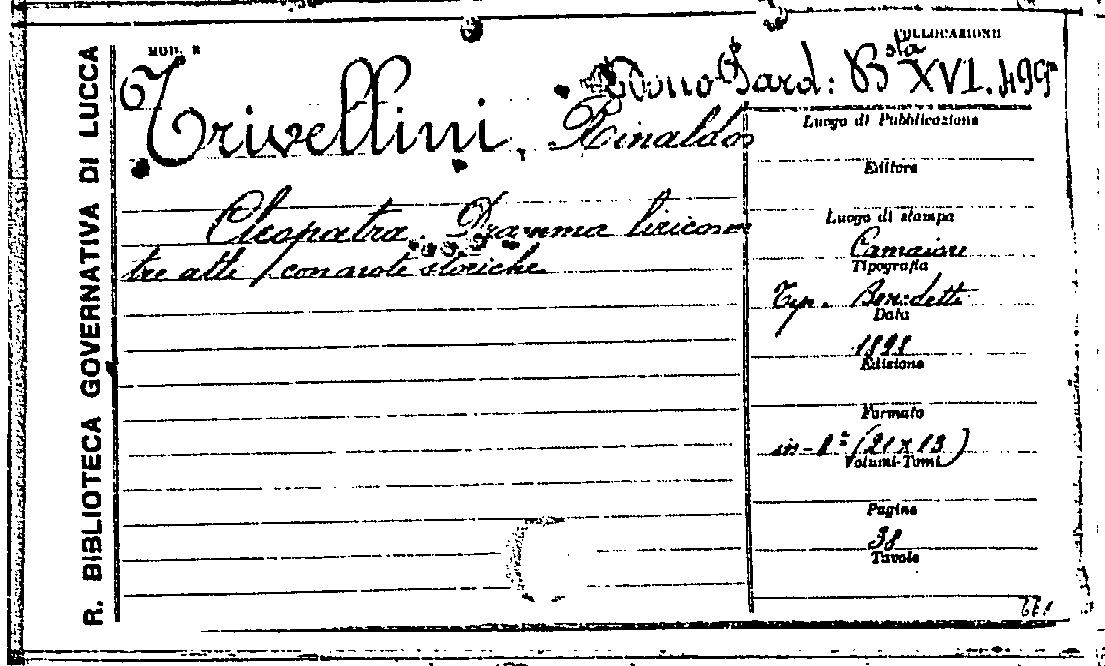 R. BIBLIOTECA GOVERNATIVA DI LUCCA
MOD.
COLLOCAZIONE
Dono Bard: Bsta XVI. 499
Trivellini, Rinaldo
Cleopatra. Dramma lirico in
tre atti / con note storiche
Luogo di Pubblicazione
Editore
Luogo di stampa
Camaiore
Tipografia
Tip. Benedetti
Data
1898
Edizione
Formato
in-8° (21 x 13)
Volumi-Tomi
Pagine
38
Tavole